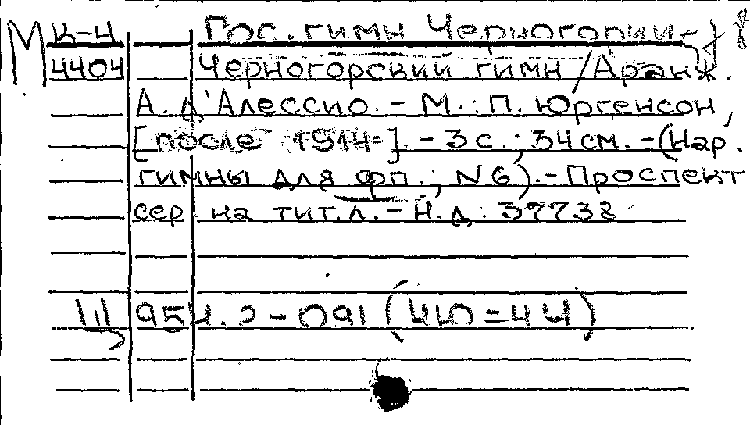 М К-4 Гос. гимн Черногории
4404 Черногорский гимн / Аранж.
А. д'Алессио. - М.: П. Юргенсон,
[после 1914]. - 3 с.; 34 см. - (Нар.
гимны для фп.; N6). - Проспект
сер. на тит. л. - Н. д.: 37738
954.2-091 (410=44)